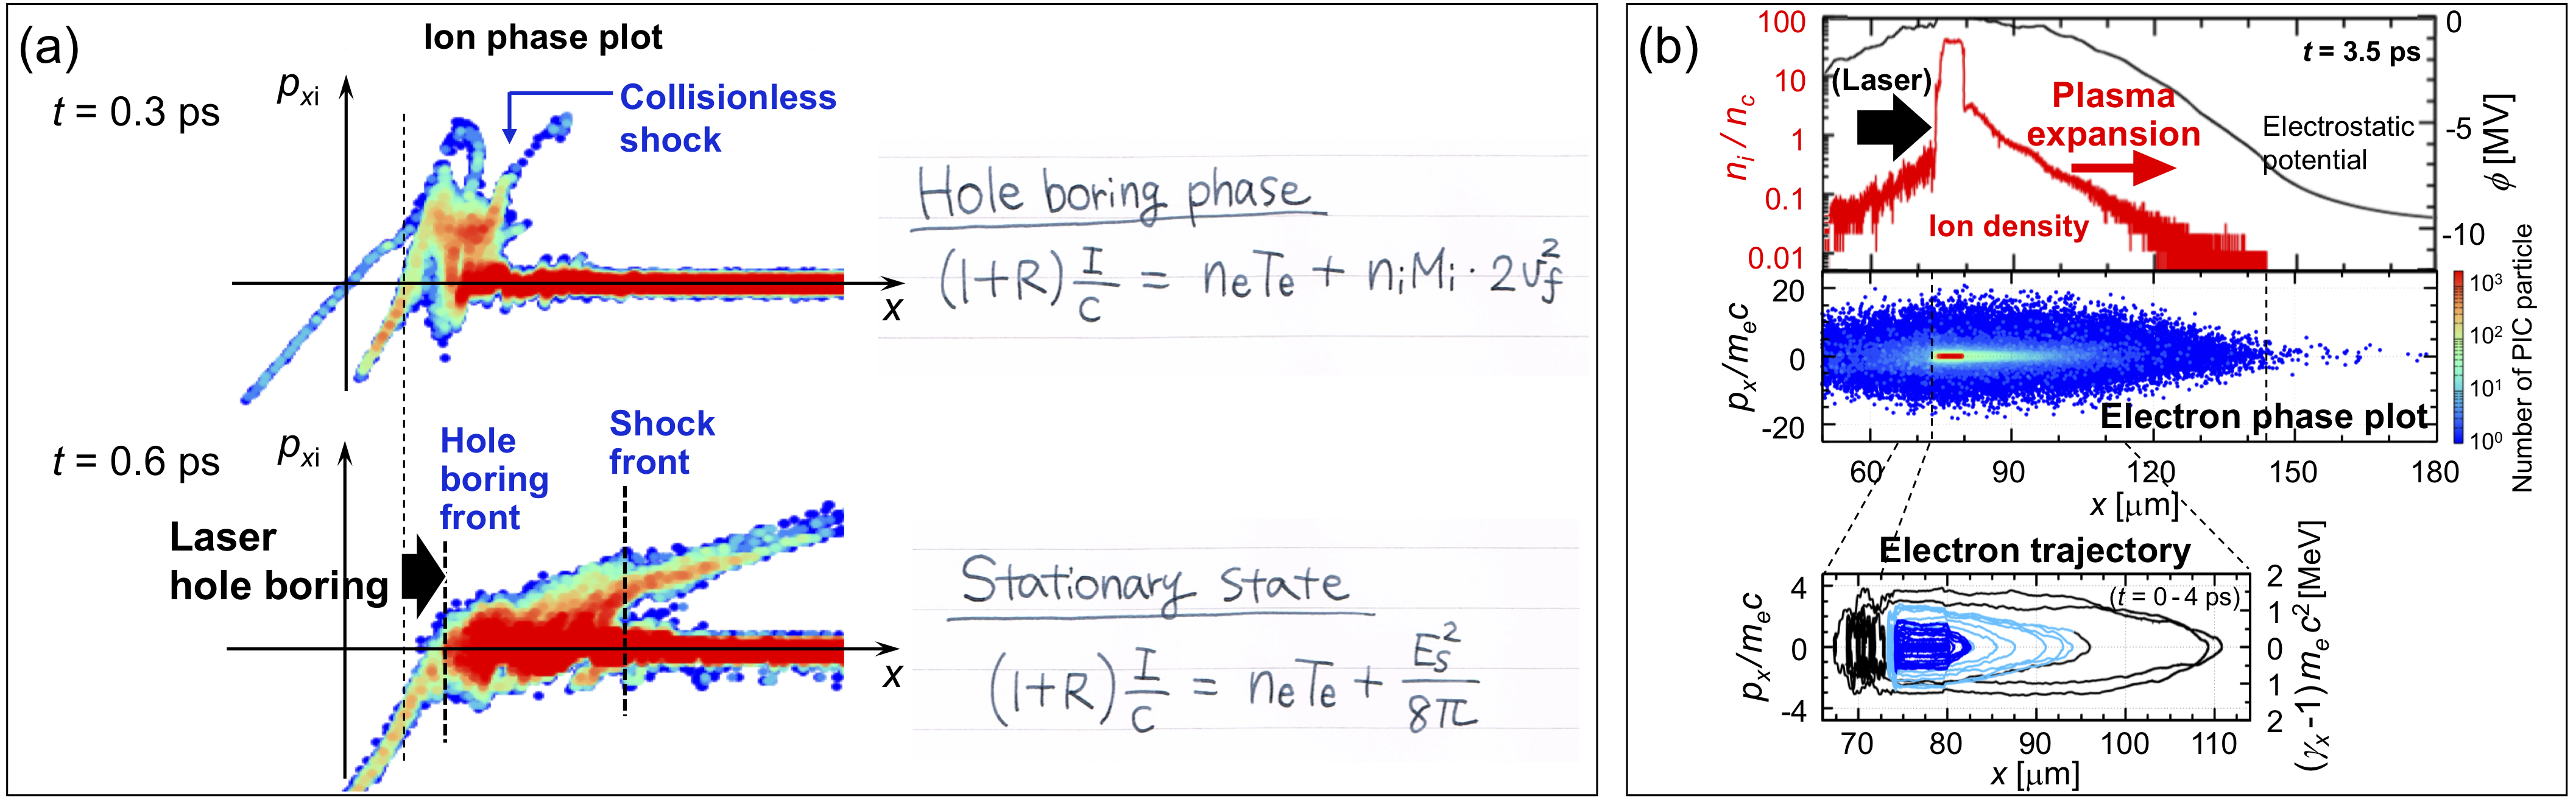 (a)
Ion phase plot
t = 0.3 ps
pxi
Collisionless
shock
x
Hole boring phase
(1+R) I/c = neTe + niMi · 2vf²
t = 0.6 ps
pxi
Hole
boring
front
Shock
front
Laser
hole boring
x
Stationary state
(1+R) I/c = neTe + Es²/8π
(b)
100
10
1
0.1
0.01
ni / nc
(Laser)
t = 3.5 ps
Plasma
expansion
Electrostatic
potential
Ion density
0
-5
-10
ϕ [MV]
20
0
-20
px/mec
Electron phase plot
10³
10²
10¹
10⁰
Number of PIC particle
60
90
120
150
180
x [μm]
Electron trajectory
(t = 0 - 4 ps)
4
0
-4
px/mec
2
1
0
1
2
(γx -1) mec² [MeV]
70
80
90
100
110
x [μm]